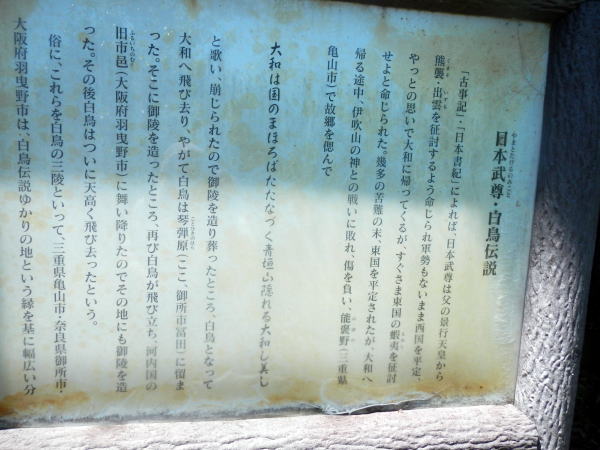 やまとたけるのみこと
日本武尊・白鳥伝説
「古事記」・「日本書紀」によれば、日本武尊は父の景行天皇から
熊襲・出雲を征討するよう命じられ軍勢もないまま西国を平定、
やっとの思いで大和に帰ってくるが、すぐさま東国の蝦夷を征討
せよと命じられた。幾多の苦難の末、東国を平定されたが、大和へ
帰る途中、伊吹山の神との戦いに敗れ、傷を負い、能褒野(三重県
亀山市)で故郷を偲んで
大和は国のまほろばたたなづく青垣山隠れる大和し美し
と歌い、崩じられたので御陵を造り葬ったところ、白鳥となって
大和へ飛び去り、やがて白鳥は琴弾原(ここ、御所市冨田)に留ま
った。そこに御陵を造ったところ、再び白鳥が飛び立ち、河内国の
旧市邑(大阪府羽曳野市)に舞い降りたのでその地にも御陵を造
った。その後白鳥はついに天高く飛び去ったという。
俗に、これらを白鳥の三陵といって、三重県亀山市・奈良県御所市・
大阪府羽曳野市は、白鳥伝説ゆかりの地という縁を基に幅広い分